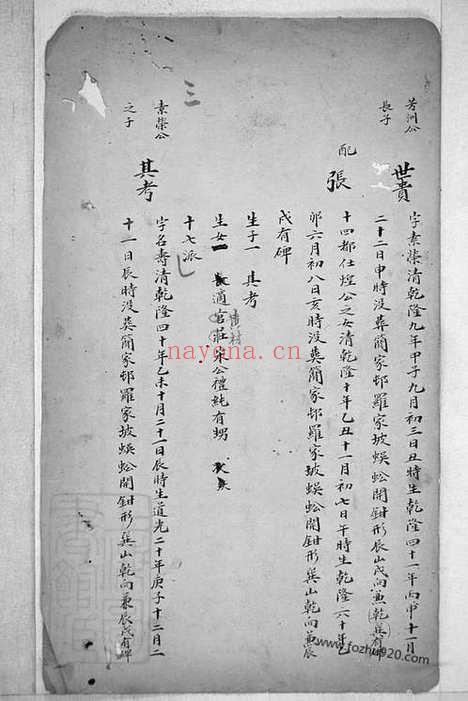 三
芳洲公
長子
世貴
字素榮清乾隆九年甲子九月初三日丑時生乾隆四十一年丙申十一月
二十二日申時没葬蘭家邨羅家坡蜈蚣開鉗形辰山戌向兼乾巽有碑
配張
十四都仕煌公之女清乾隆十年乙丑十一月初七日午時生乾隆六十年乙
卯六月初八日亥時没葬蘭家邨羅家坡蜈蚣開鉗形巽山乾向兼辰
戌有碑
生子一 其考
生女一 長適官莊 公禮純有甥
十七派
素榮公
之子
其考
字名壽清乾隆四十年乙未十月二十一日辰時生道光二十年庚子十二月二
十一日辰時没葬蘭家邨羅家坡蜈蚣開鉗形巽山乾向兼辰戌有碑
nayona.cn
www.fozhu920.com